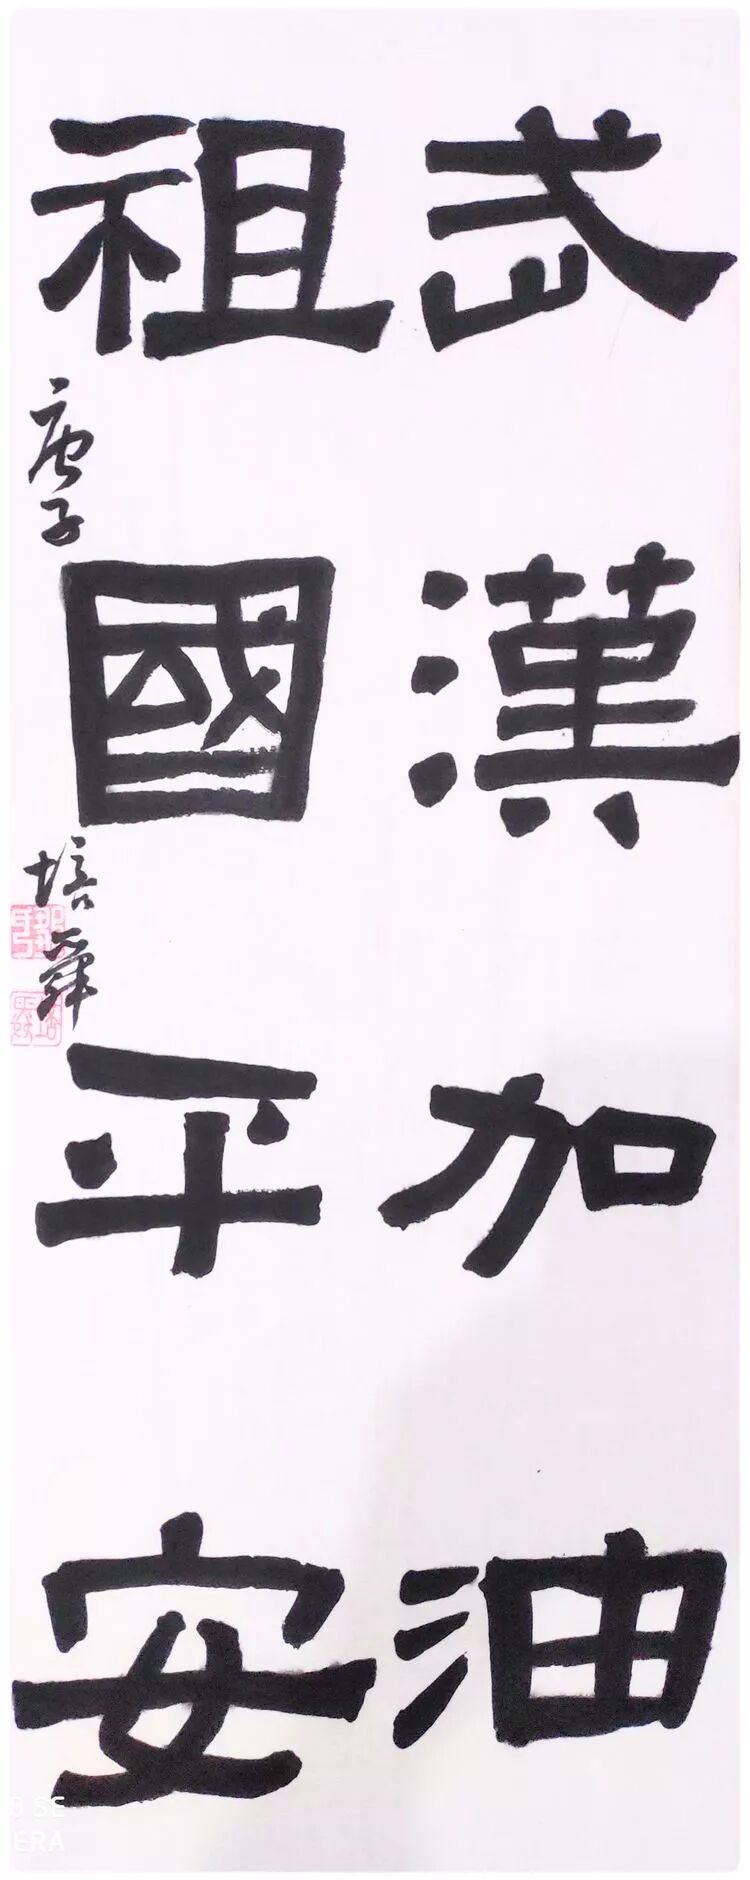 武漢加油
祖國平安
庚子
培舜
8 SE
ERA